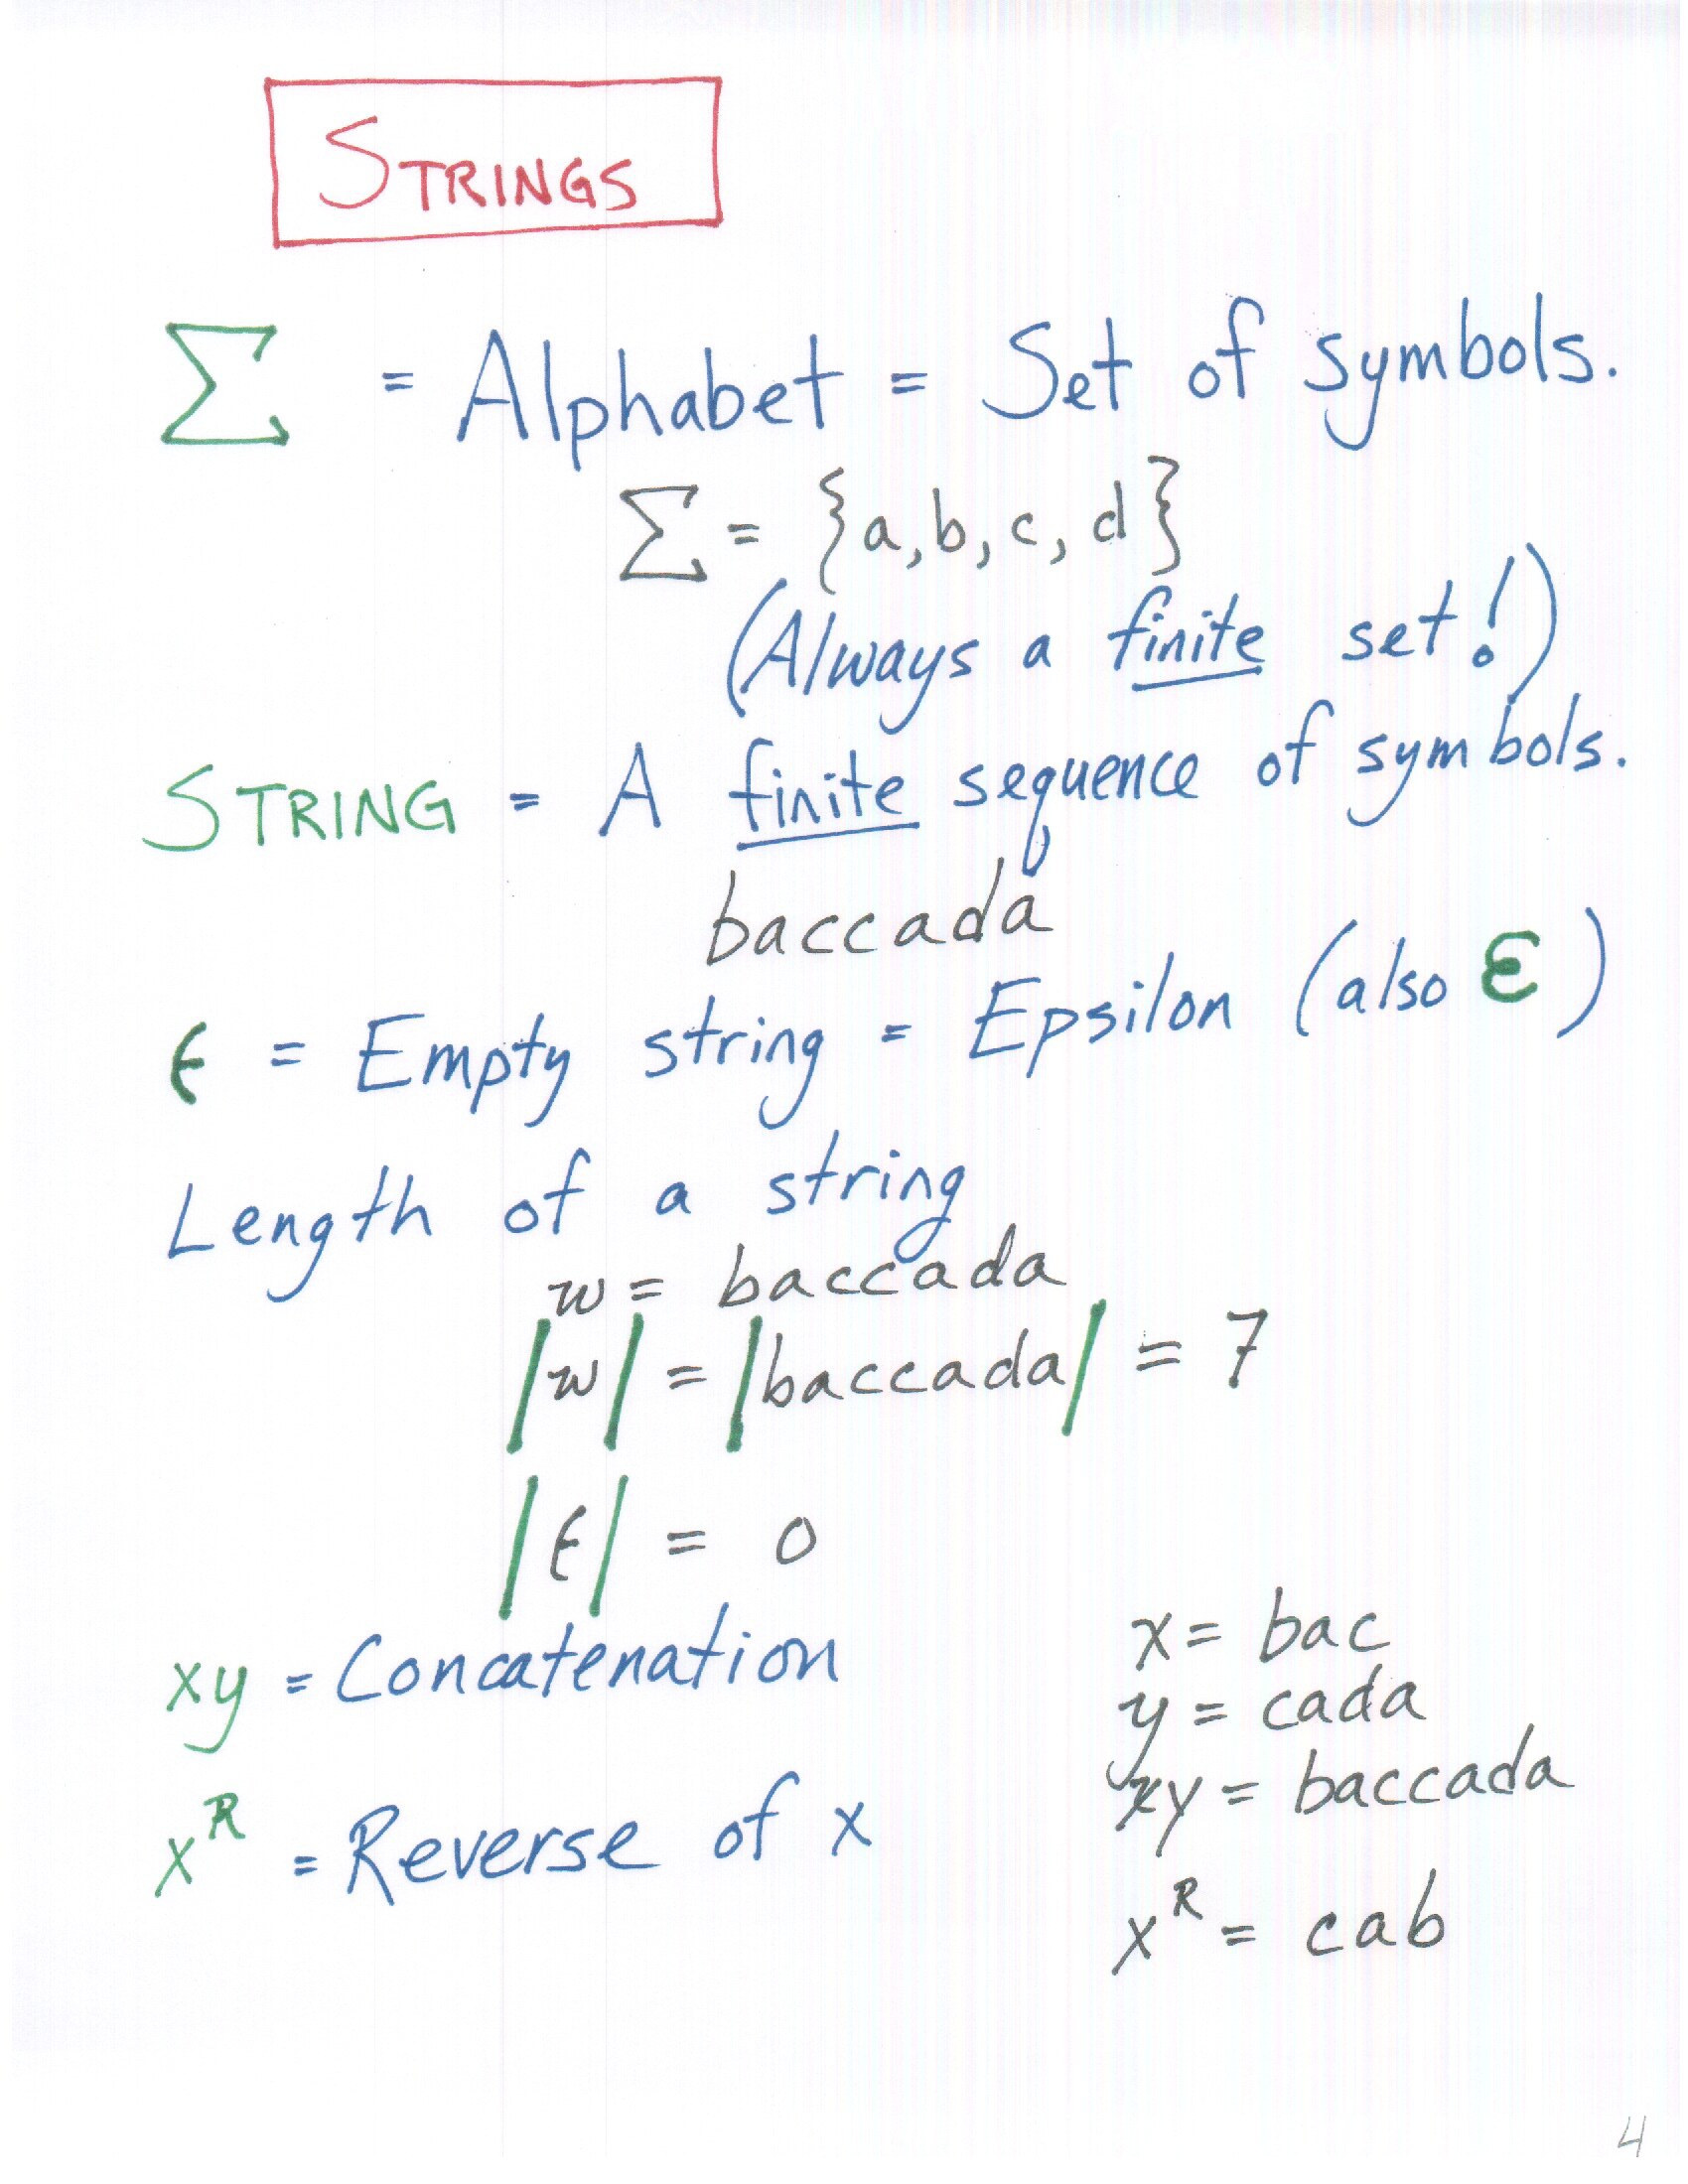 STRINGS
Σ = Alphabet = Set of symbols.
Σ = {a, b, c, d}
(Always a finite set!)
STRING = A finite sequence of symbols.
baccada
ϵ = Empty string = Epsilon (also ε)
Length of a string
w = baccada
|w| = |baccada| = 7
|ϵ| = 0
xy = Concatenation
x^R = Reverse of x
x = bac
y = cada
xy = baccada
x^R = cab
4